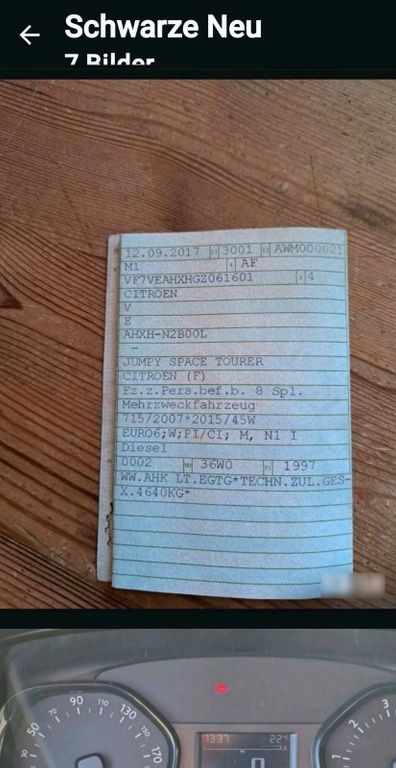 Schwarze Neu
7 Bilder
12.09.2017 3001 AWM000021
M1 AF
VF7VEAHXHGZ061601 4
CITROEN
V
E
AHXH-N2B00L
-
JUMPY SPACE TOURER
CITROEN (F)
Fz.z.Pers.bef.b. 8 Spl.
Mehrzweckfahrzeug
715/2007*2015/45W
EURO6;W;PI/CI; M, N1 I
Diesel
0002 36W0 1997
WW.AHK LT.EGTG*TECHN.ZUL.GES-
X.4640KG*
1337 22°
30 50 70 90 110 130 150 170
1 2 3